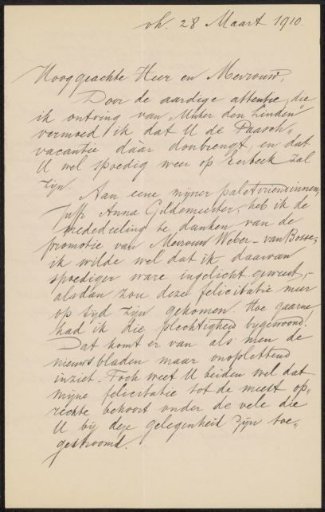 oh. 28 Maart 1910
Hooggeachte Heer en Mevrouw,
Door de aardige attentie, die
ik ontving van "Mider den Linden"
vermoed ik dat U de Paasch-
vacantie daar doorbrengt, en dat
U wel spoedig weer op Eerbeek zal
zijn.
Aan eene mijner paletvriendinnen,
Jufr. Anna Gildemeester, heb ik de
mededeeling te danken van de
promotie van Mevrouw Weber-van Bosse;
ik wilde wel dat ik daarvan
spoediger ware ingelicht geweest,-
alsdan zou deze felicitatie meer
op tijd zijn gekomen. Hoe gaarne
had ik die plechtigheid bijgewoond!
Dat komt er van als men de
nieuwsbladen maar onoplettend
inziet. Toch weet U beiden wel dat
mijne felicitatie tot de meest op-
rechte behoort onder de vele die
U bij deze gelegenheid zijn toe-
gestroomd.